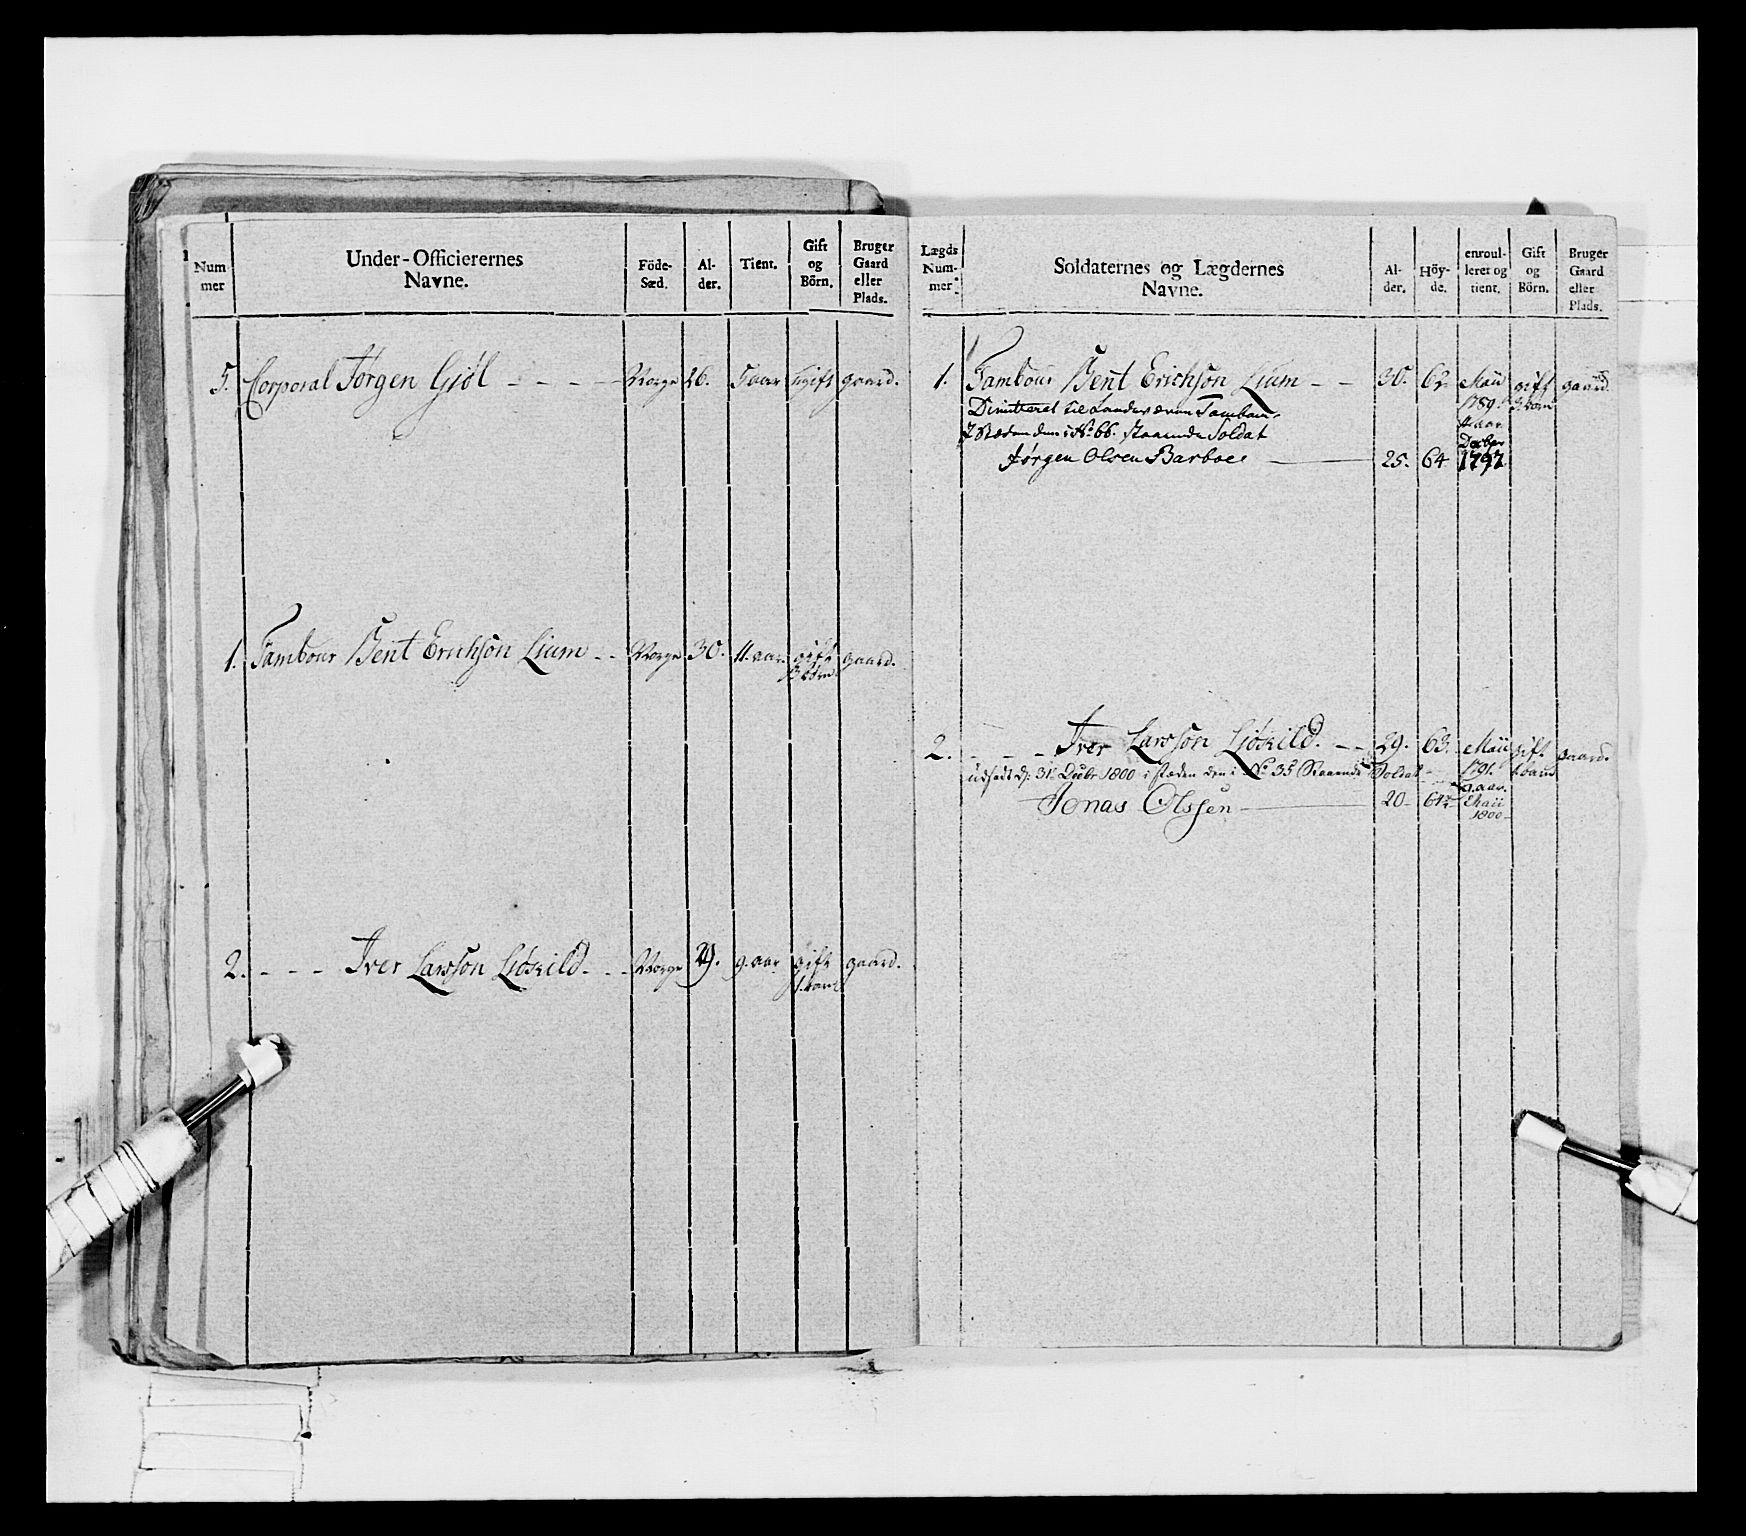 Num-
mer
Under-Officierernes
Navne.
Föde-
Sæd.
Al-
der.
Tient.
Gift
og
Börn.
Bruger
Gaard
eller
Plads.
5. Corporal Jørgen Gjøl - - - - Norge 26. 5 aar ugift gaard.
1. Tambour Bent Erichson Lium - - Norge 30. 11. aar. gift gaard.
3 børn
2. - - - Iver Larsson Ljøskild. - - Norge 29. 9. aar gift gaard.
1. barn
Lægds
Num-
mer.
Soldaternes og Lægdernes
Navne.
Al-
der.
Höy-
de.
enroul-
leret og
tient.
Gift
og
Börn.
Bruger
Gaard
eller
Plads.
1. Tambour Bent Erichson Lium - - 30. Maii gift gaard.
Dimitteret til Landeværn Tambour. 1789. 3. børn
I Stæden den i No. 66. staaende Soldat 11 aar
Decbr
Jørgen Olsen Barboe 25. 64 1797
2. - - - Iver Larsson Ljøskild. - - 29. 63. Maii gift gaard.
udsadt d: 31. Decbr 1800 i stæden den i No. 35 Staaende Soldat - 1791. 1. barn
9. aar.
Jonas Olssen 20 - Maii
1800 -